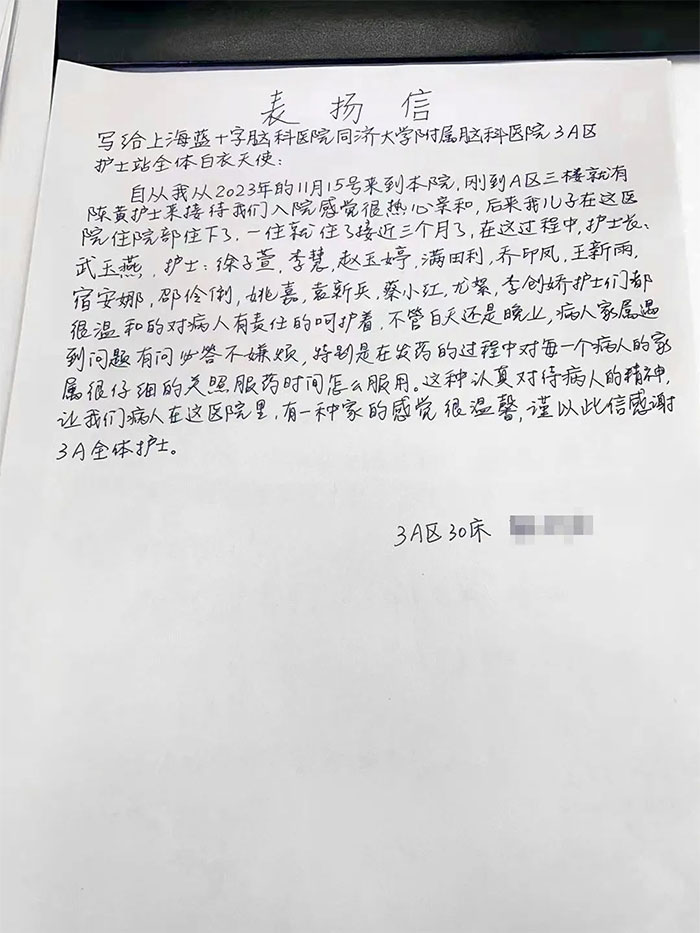 表扬信
写给上海蓝十字脑科医院同济大学附属脑科医院3A区
护士站全体白衣天使:
自从我从2023年的11月15号来到本院,刚到A区三楼就有
陈黄护士来接待我们入院感觉很热心亲和,后来我儿子在这医
院住院部住下了.一住就住了接近三个月了,在这过程中,护士长:
武玉燕,护士:徐子萱,李慧,赵玉婷,满田利,乔印凤,王新雨,
宿安娜,邵伶俐,姚嘉,袁新兵,蔡小红,尤絮,李创娇护士们都
很温和的对病人有责任的呵护着,不管白天还是晚上,病人家属遇
到问题有问必答不嫌烦,特别是在发药的过程中对每一个病人的家
属很仔细的关照服药时间怎么服用。这种认真对待病人的精神,
让我们病人在这医院里,有一种家的感觉很温馨,谨以此信感谢
3A全体护士。
3A区30床